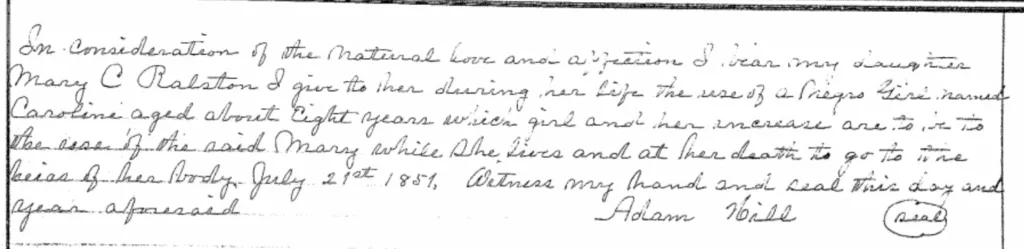 In consideration of the natural love and affection I bear my daughter
Mary C Ralston I give to her during her life the use of a Negro Girl named
Caroline aged about Eight years which girl and her increase are to be to
the use of the said Mary while she lives and at her death to go to the
heirs of her body. July 21st 1851. Witness my hand and seal this day and
year aforesaid Adam Hill seal